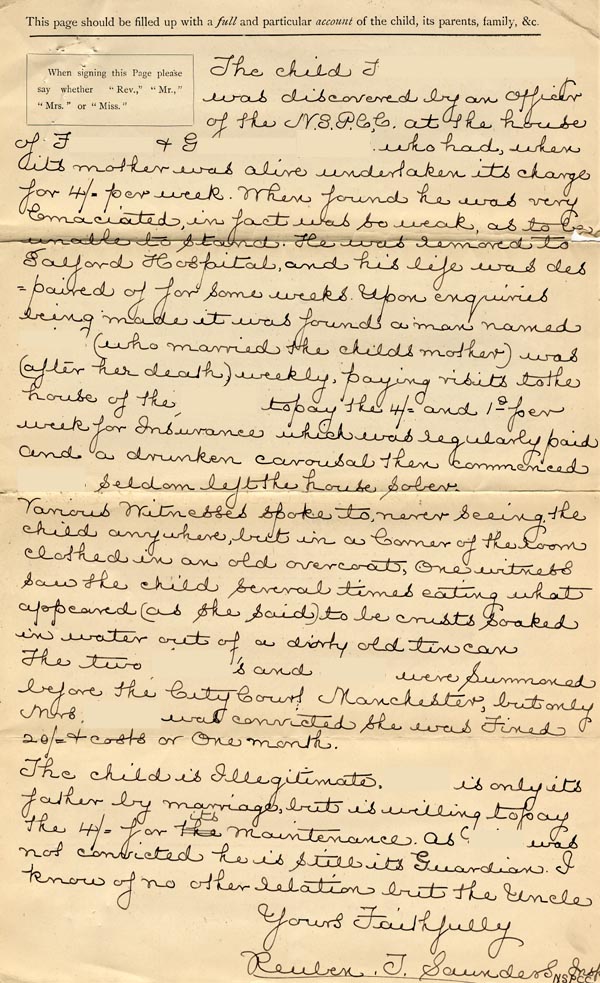 This page should be filled up with a full and particular account of the child, its parents, family, &c.
When signing this Page please
say whether "Rev.," "Mr.,"
"Mrs." or "Miss."
The child F
was discovered by an Officer
of the N.S.P.C.C. at the house
of F & G who had, when
its mother was alive undertaken its charge
for 4/- per week. When found he was very
Emaciated, in fact was so weak, as to be
unable to stand. He was removed to
Salford Hospital, and his life was des
=paired of for some weeks. Upon enquiries
being made it was found a man named
(who married the childs mother) was
(after her death,) weekly, paying visits to the
house of the to pay the 4/- and 1d per
week for Insurance which was regularly paid
and a drunken carousal then commenced
Seldom left the house sober.
Various Witnesses spoke to, never seeing the
child anywhere, but in a Corner of the room
clothed in an old overcoat, One witness
saw the child several times eating what
appeared (as she said) to be crusts soaked
in water out of a dirty old tin can
The two 's and were Summoned
before the City Court Manchester, but only
Mrs. was convicted she was Fined
20/- & costs or One month.
The child is Illegitimate. is only its
father by marriage, but is willing to pay
the 4/- for the its Maintenance. As was
not convicted he is still its Guardian. I
know of no other relation but the Uncle
Yours Faithfully
Reuben. T. Saunders, Insp
NSPCC